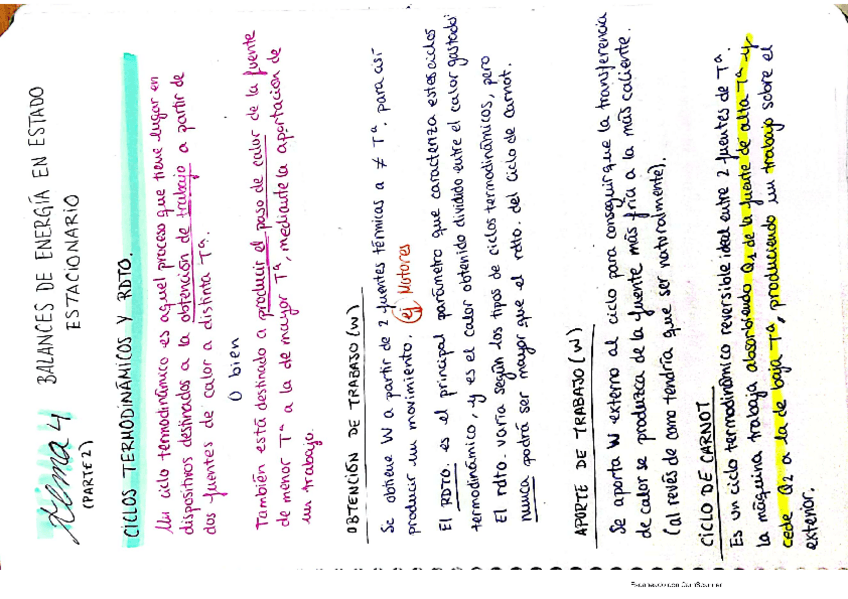 Tema 4 BALANCES DE ENERGÍA EN ESTADO
(PARTE 2) ESTACIONARIO
CICLOS TERMODINÁMICOS Y RDTO.
Un ciclo termodinámico es aquel proceso que tiene lugar en
dispositivos destinados a la obtención de trabajo a partir de
dos fuentes de calor a distinta Tª.
O bien
También está destinado a producir el paso de calor de la fuente
de menor Tª a la de mayor Tª, mediante la aportación de
un trabajo.
OBTENCIÓN DE TRABAJO (W)
Se obtiene W a partir de 2 fuentes térmicas a ≠ Tª. para así
producir un movimiento. ej Motores
El RDTO. es el principal parámetro que caracteriza estos ciclos
termodinámico, y es el calor obtenido dividido entre el calor gastado.
El rdto. varía según los tipos de ciclos termodinámicos, pero
nunca podrá ser mayor que el rdto. del ciclo de Carnot.
APORTE DE TRABAJO (W)
Se aporta W externo al ciclo para conseguir que la transferencia
de calor se produzca de la fuente más fría a la más caliente.
(al revés de como tendría que ser naturalmente).
CICLO DE CARNOT
Es un ciclo termodinámico reversible ideal entre 2 fuentes de Tª.
la máquina trabaja absorbiendo Q1 de la fuente de alta Tª y
cede Q2 a la de baja Tª, produciendo un trabajo sobre el
exterior.
Escaneado con CamScanner